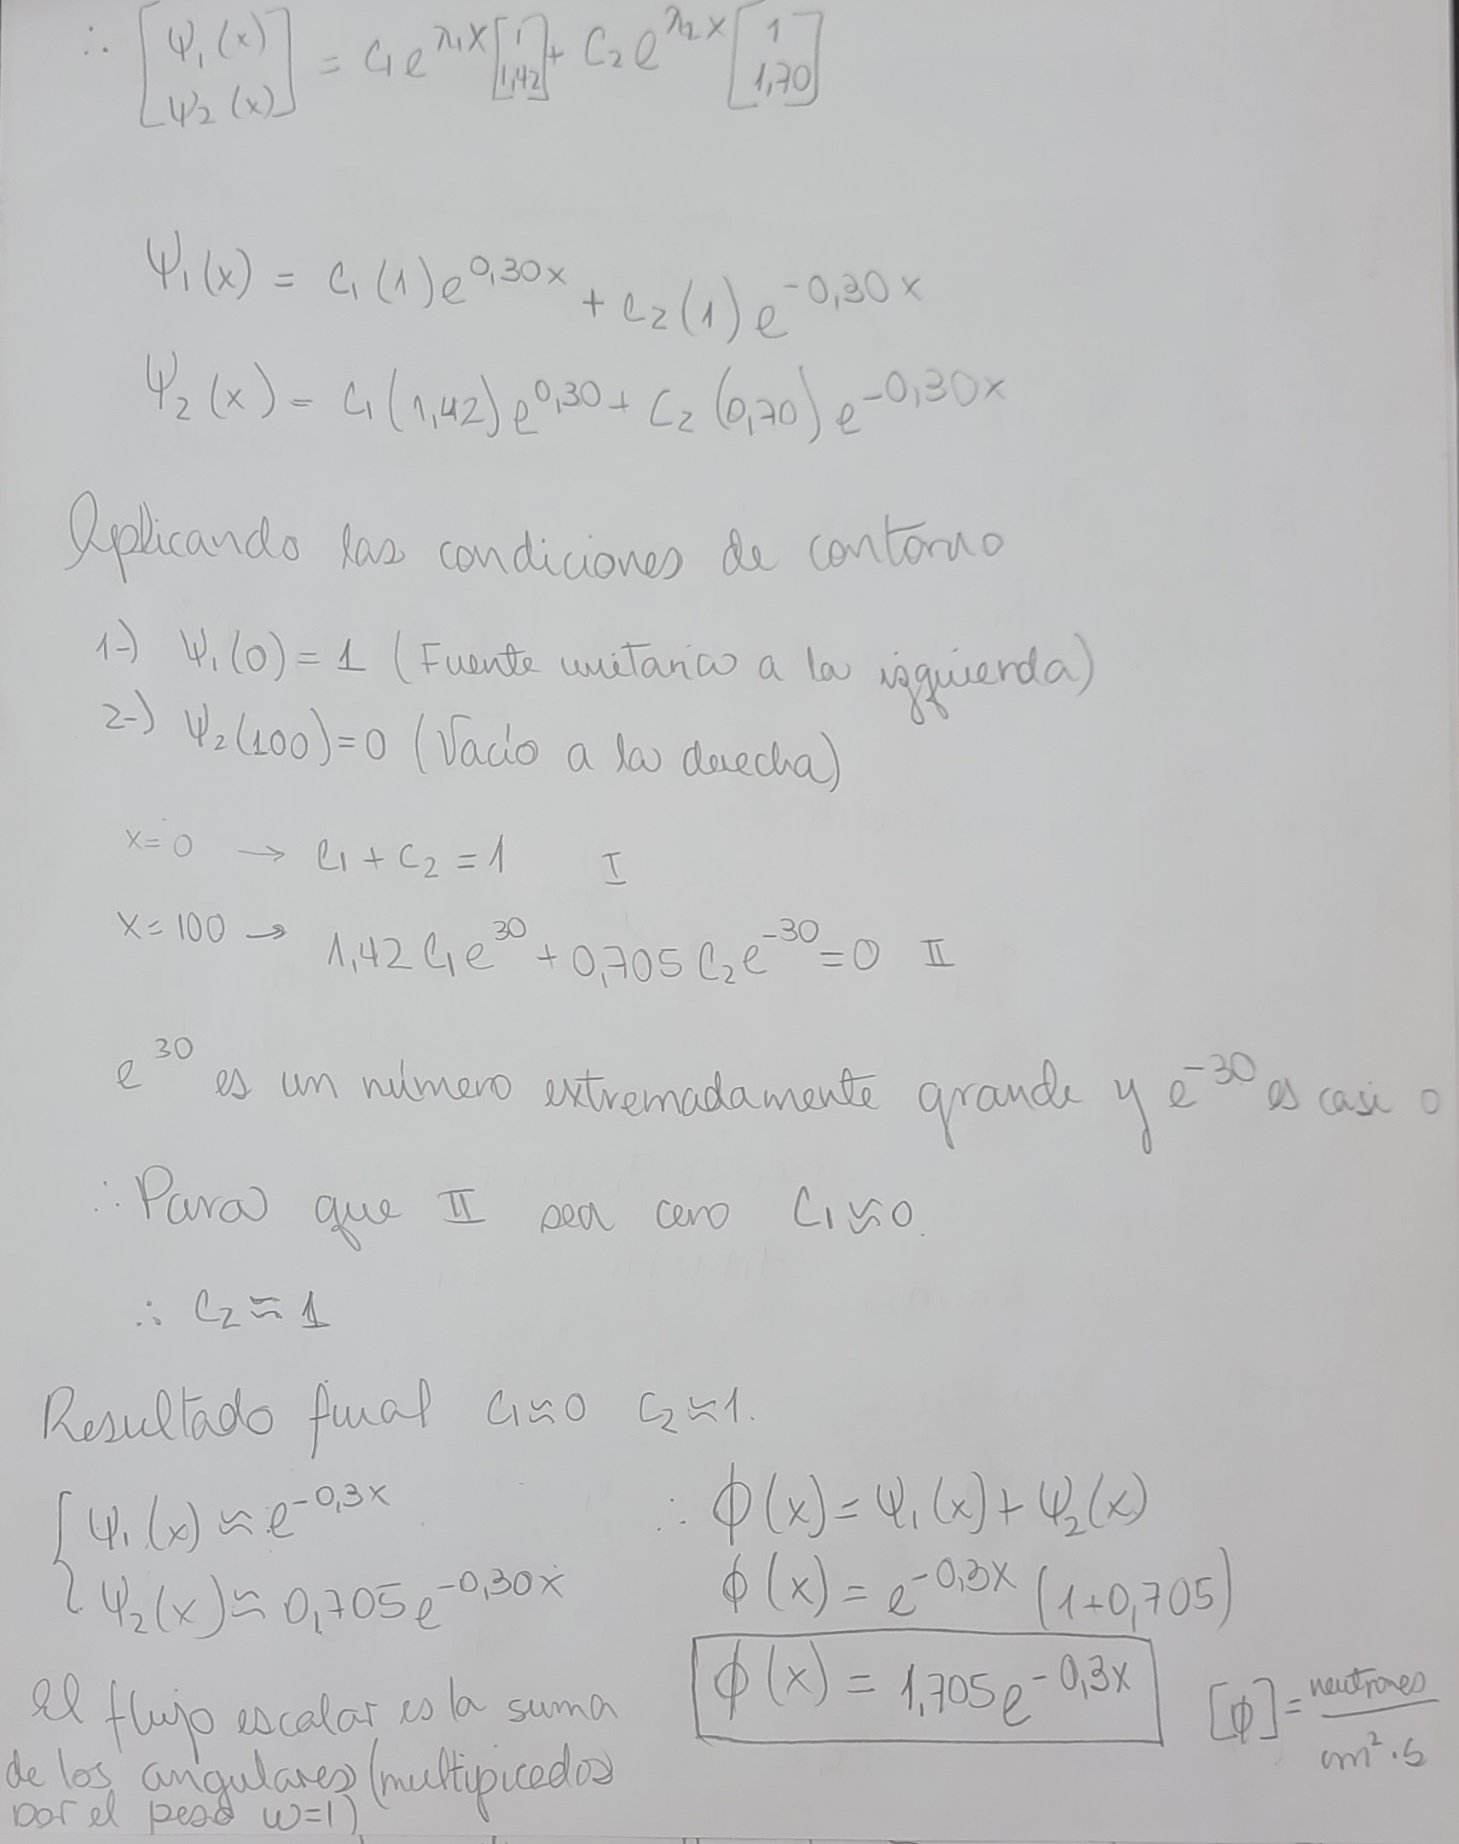 ∴ [ψ₁(x) ψ₂(x)] = C₁e^{λ₁x} [1 1,42] + C₂e^{λ₂x} [1 1,70]
ψ₁(x) = C₁(1)e^{0,30x} + C₂(1)e^{-0,30x}
ψ₂(x) = C₁(1,42)e^{0,30} + C₂(0,70)e^{-0,30x}
Aplicando las condiciones de contorno
1-) ψ₁(0) = 1 (Fuente unitaria a la izquierda)
2-) ψ₂(100) = 0 (Vacío a la derecha)
x=0 → C₁ + C₂ = 1 I
x=100 → 1,42C₁e^{30} + 0,705C₂e^{-30} = 0 II
e^{30} es un número extremadamente grande y e^{-30} es casi 0
∴ Para que II sea cero C₁≈0.
∴ C₂ ≈ 1
Resultado final C₁≈0 C₂≈1.
ψ₁(x) ≈ e^{-0,3x}
ψ₂(x) ≈ 0,705e^{-0,30x}
∴ ϕ(x) = ψ₁(x) + ψ₂(x)
ϕ(x) = e^{-0,3x} (1+0,705)
ϕ(x) = 1,705e^{-0,3x}
[ϕ] = neutrones / cm²·s
El flujo escalar es la suma
de los angulares (multipicados
por el peso w=1)